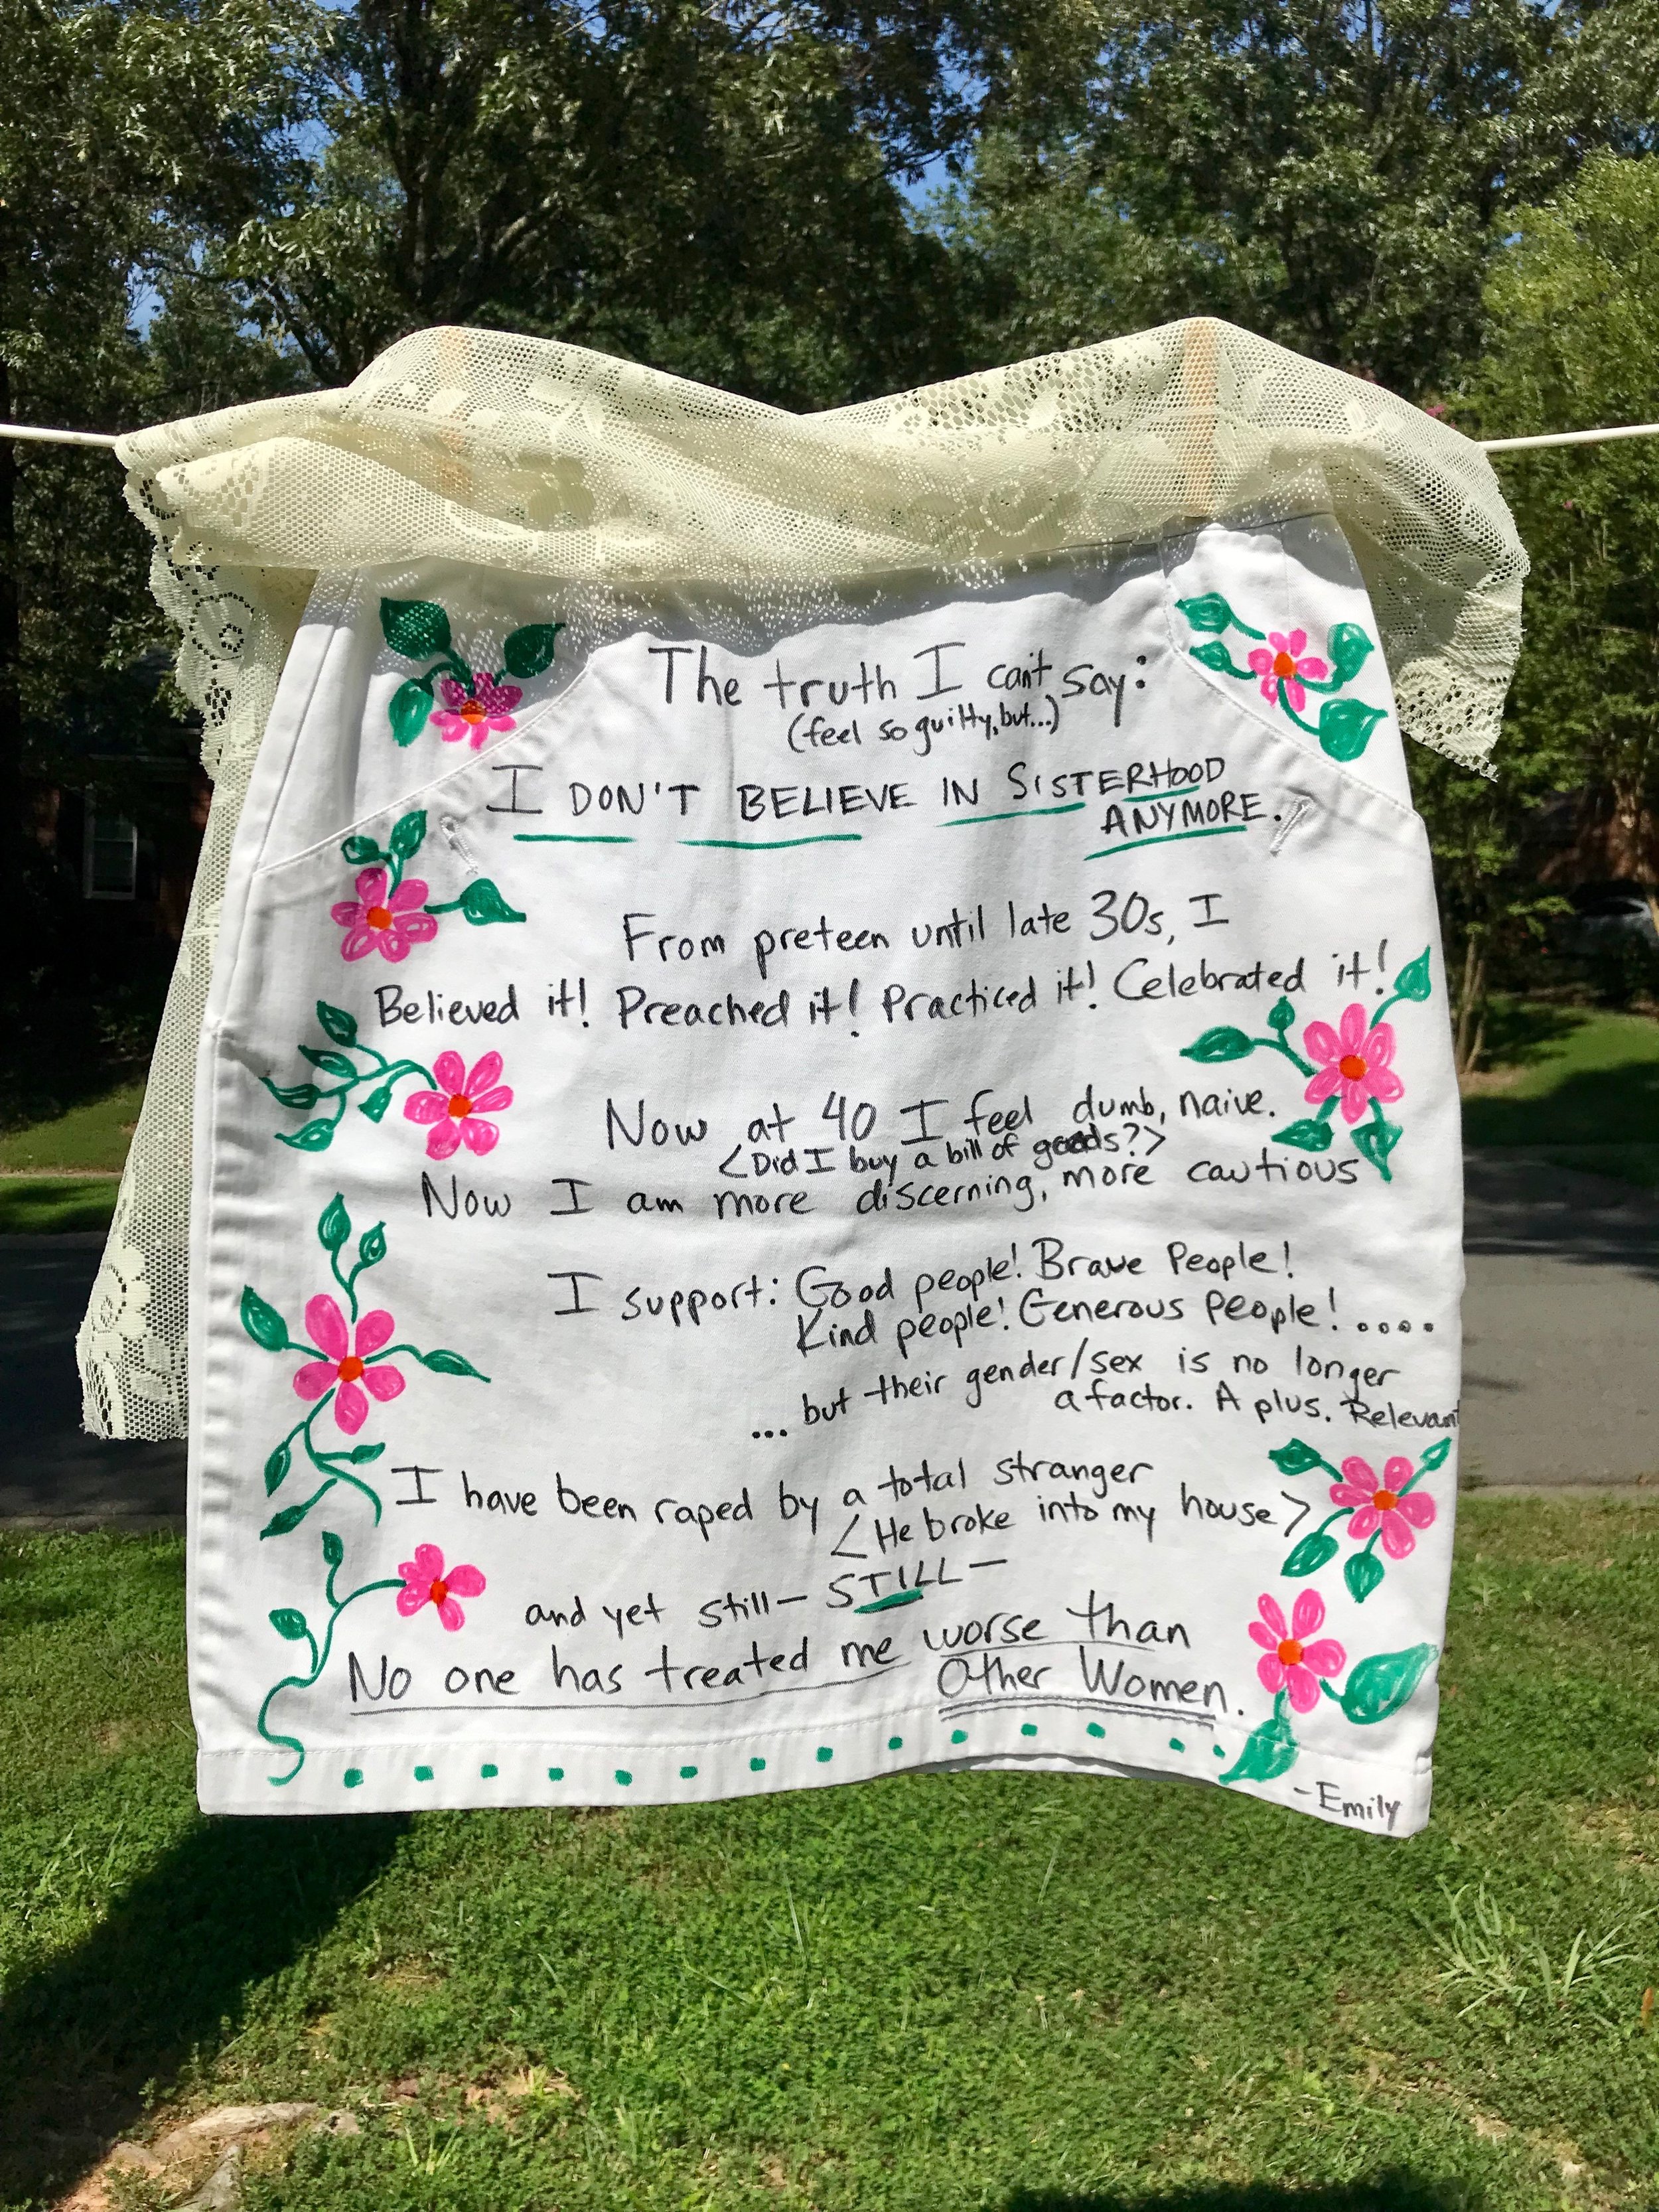 The truth I can't say:
(feel so guilty, but...)
I DON'T BELIEVE IN SISTERHOOD
ANYMORE.
From preteen until late 30s, I
Believed it! Preached it! Practiced it! Celebrated it!
Now at 40 I feel dumb, naive.
<Did I buy a bill of goods?>
Now I am more discerning, more cautious
I support: Good people! Brave People!
Kind people! Generous people!....
...but their gender/sex is no longer
a factor. A plus. Relevant
I have been raped by a total stranger
<He broke into my house>
and yet still- STILL-
No one has treated me worse than
Other Women.
-Emily